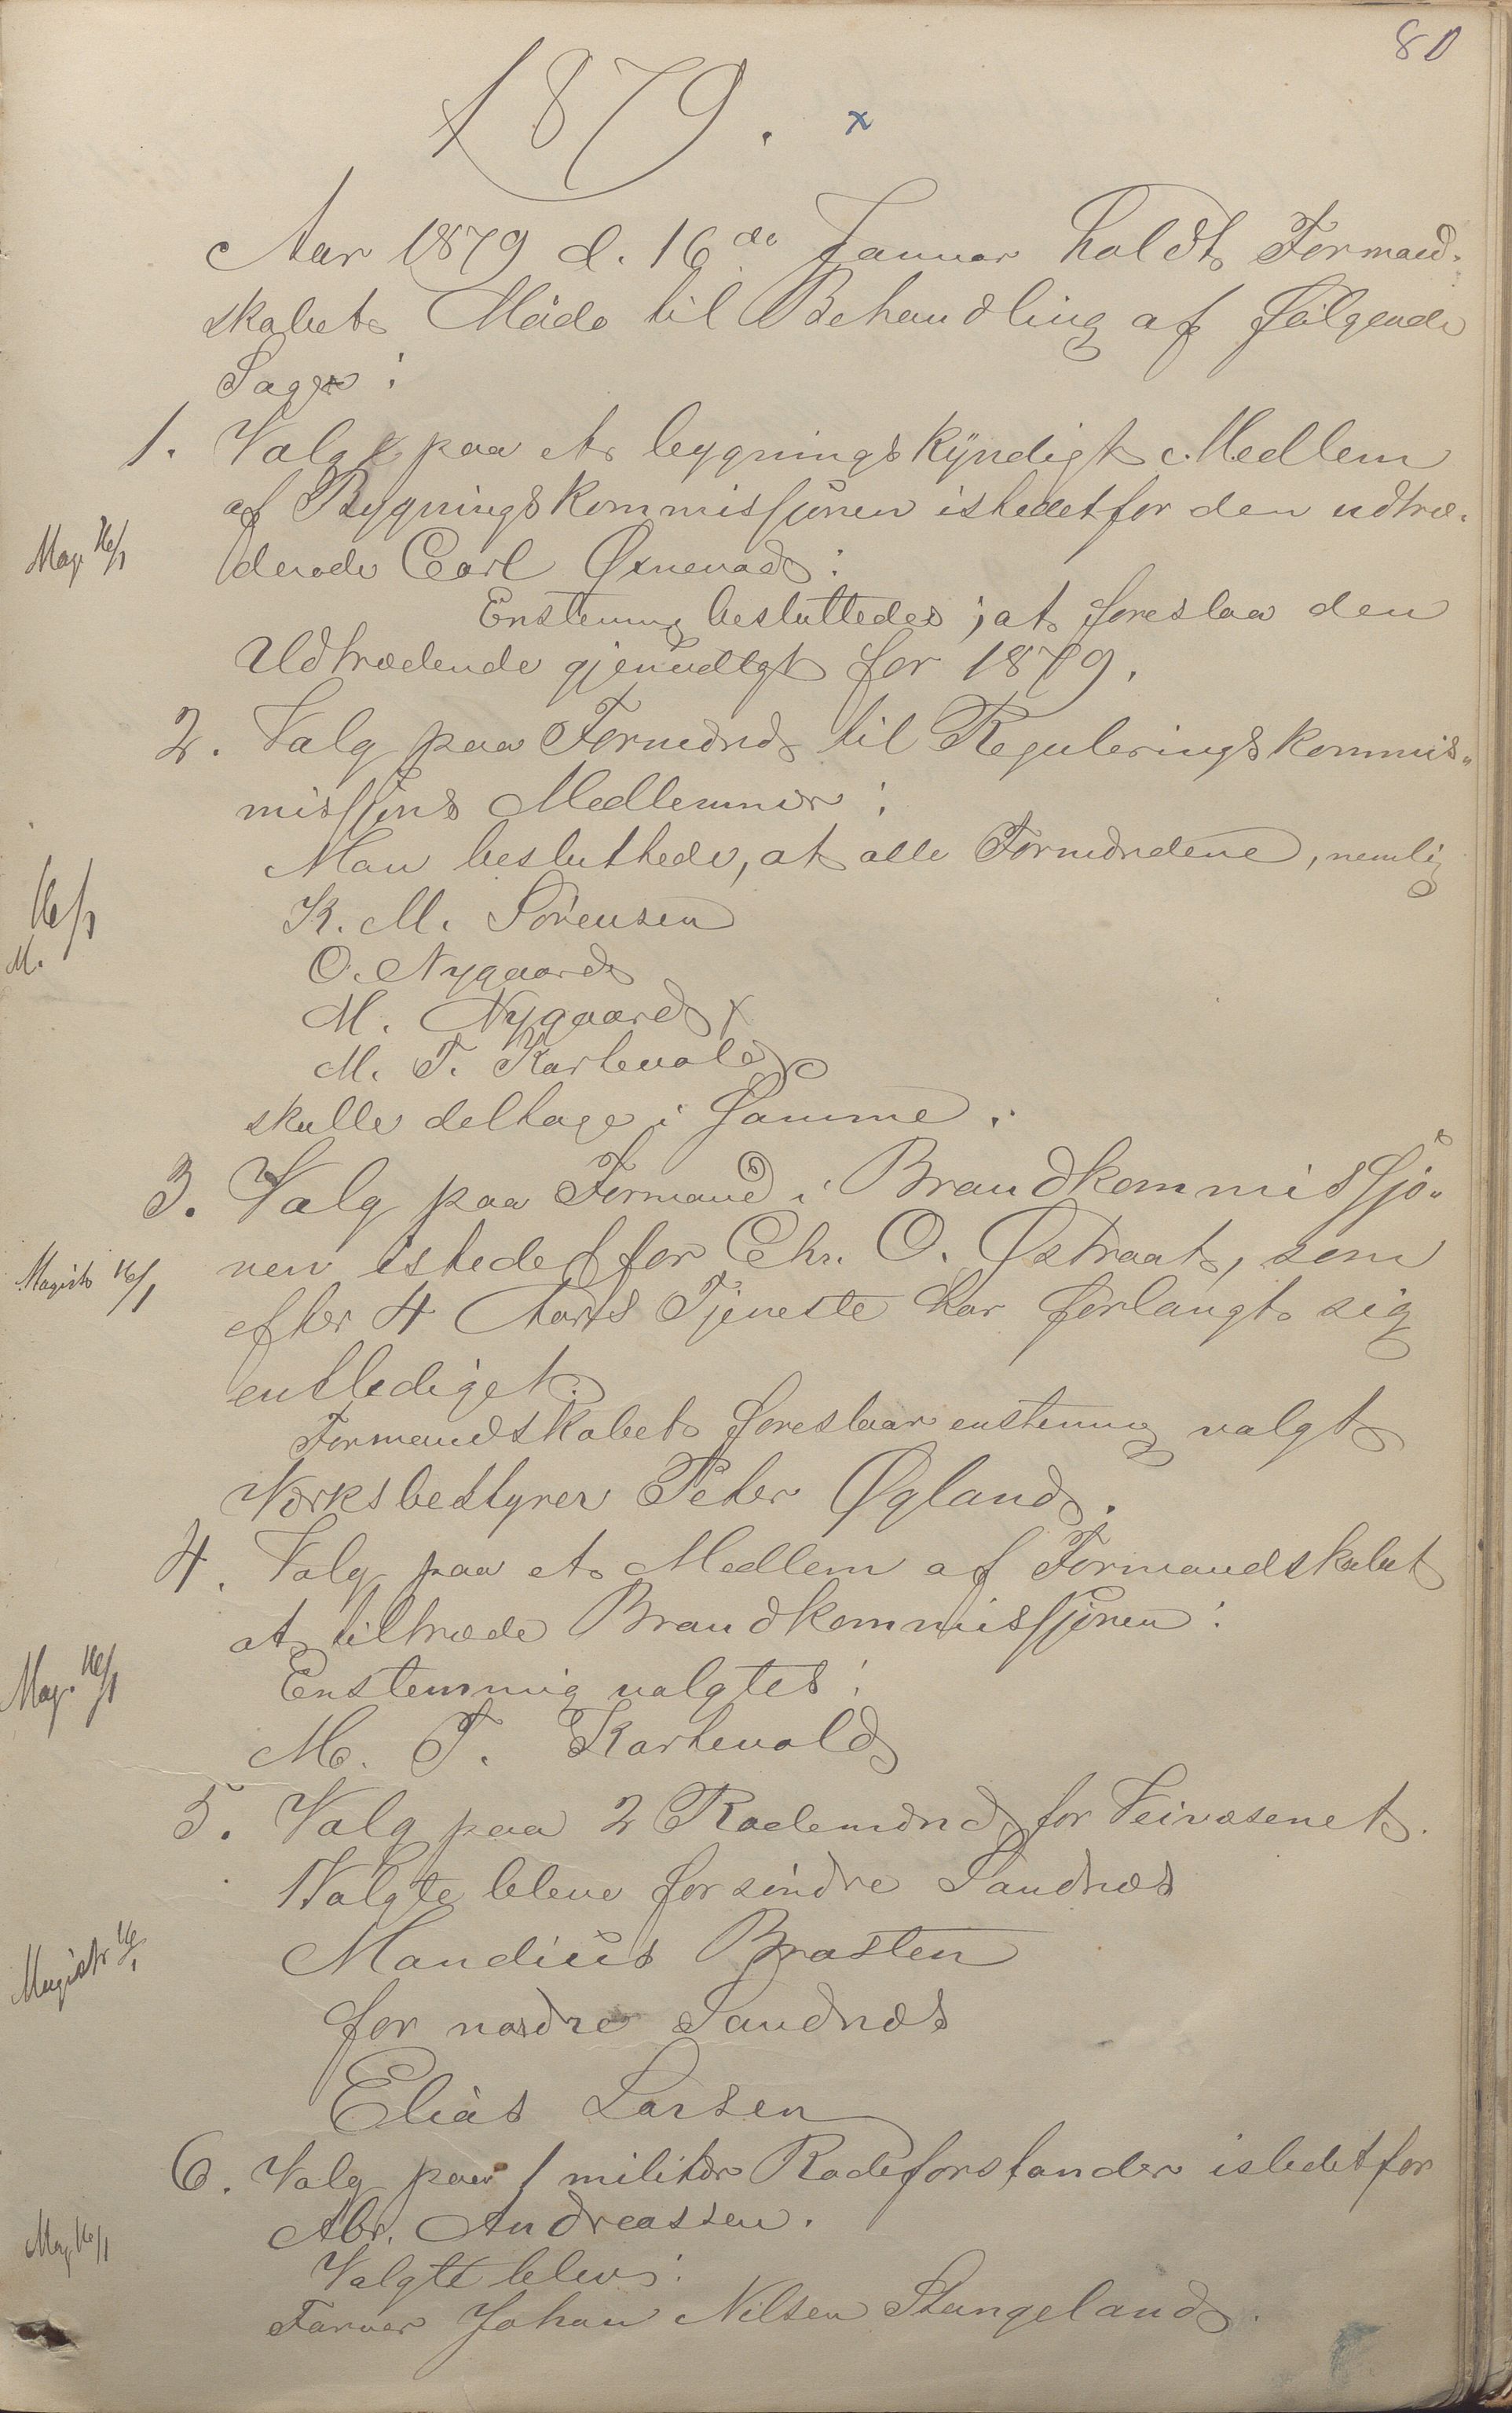 80
1879. x
Aar 1879 d. 16de Januar holdt Formand-
skabet Möde til Behandling af fölgende
Sager:
1. Valg paa et bygningskyndigt Medlem
af Bygningskommissjonen istedetfor den udtræ-
Mag. 16/1
dende Carl Øxnevad:
Enstemmig besluttedes; at foreslaa den
Udtrædende gjenvalgt for 1879.
2. Valg paa Formænd til Reguleringskommis-
missjons Medlemmer:
Man besluttede, at alle Formændene, nemlig
16/1
M.
K. M. Sörensen
O. Nygaard
M. Nygaard x
M. T. Kartevold
skulle deltage i Samme.
3. Valg paa Formand i Brandkommissjo-
nen istedetfor Chr. O. Østraat, som
Magistr 16/1
efter 4 Aars Tjeneste har forlangt sig
entlediget.
Formandskabet foreslaar enstemmig valgt
Værksbestyrer Peter Øgland.
4. Valg paa et Medlem af Formandskabet
at tiltræde Brandkommissjonen:
Mag. 16/1
Enstemmig valgtes:
M. T. Kartevold
5. Valg paa 2 Rodemænd for Veivæsenet.
Valgte bleve for söndre Sandnæs
Magistr 16/1
Mandius Brasten
for nordre Sandnæs
Elias Larsen
6. Valg paa 1 militær Rodeforstander istedetfor
Abr. Andreassen.
Mag 16/1
Valgte blev:
Farver Johan Nilsen Stangeland.